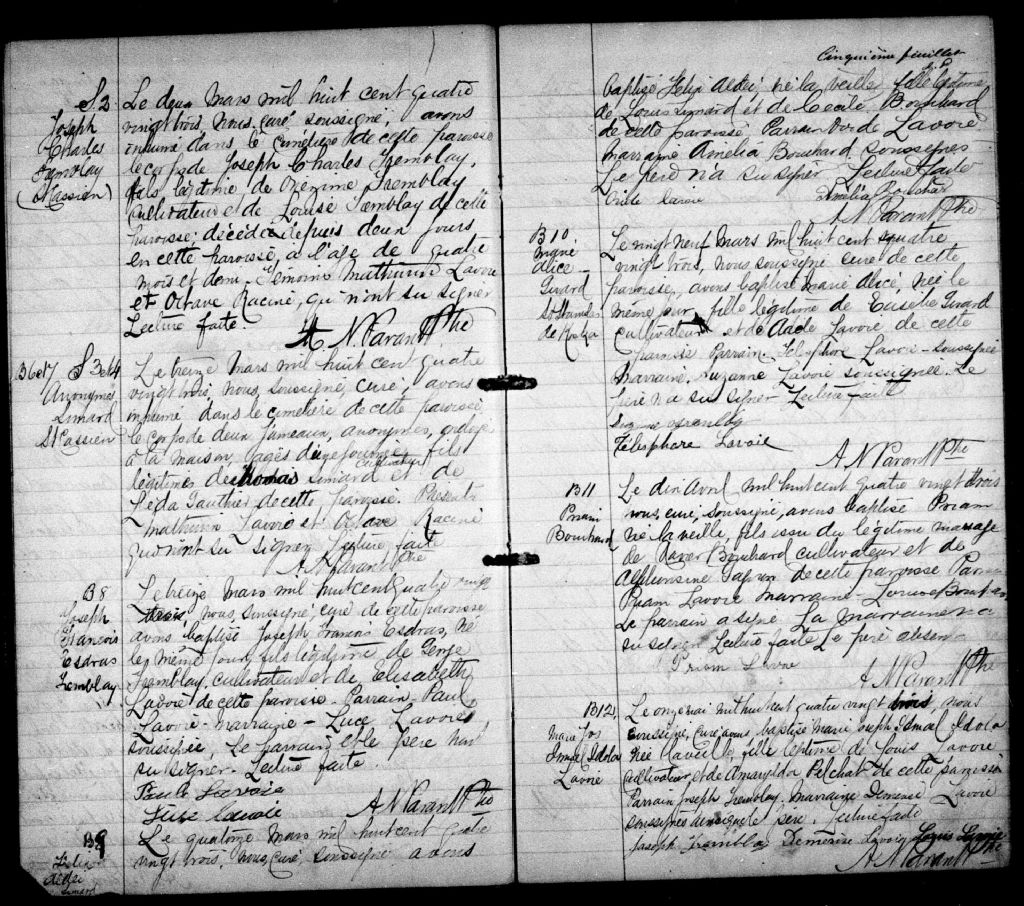 S 2
Joseph
Charles
Tremblay
(St Cassien)
Le deux Mars mil huit cent quatre
vingt trois nous curé soussigné, avons
inhumé dans le cimetière de cette paroisse
le corps de Joseph Charles Tremblay,
fils légitime de Onezime Tremblay
cultivateur et de Louise Tremblay de cette
paroisse; décédé depuis deux jours
en cette paroisse, a l'age de quatre
mois et demi. Témoins Mathurin Lavoie
et Octave Racine, qui n'ont su signer
Lecture faite.
A N Parant Ptre
B 6 et 7 S 3 et 4
Anonymes
Simard
St Cassien
Le treize Mars mil huit cent quatre
vingt trois, nous, soussigné, curé, avons
inhumé dans le cimetière de cette paroisse,
le corps de deux jumeaux, anonymes, ondoyé
à la maison, agés de
fils
légitimes de Thomas Simard cultivateur et de
Léda Gauthier de cette paroisse. Présents
Mathurin Lavoie et Octave Racine
qui n'ont su signer Lecture faite
A N Parant Ptre
B 8
Joseph
François
Esdras
Tremblay
Le treize Mars mil huit cent quatre vingt
trois, nous, soussigné, curé de cette paroisse
avons baptisé Joseph François Esdras, né
le même jour, fils légitime de
Tremblay, cultivateur et de Elisabeth
Lavoie de cette paroisse. Parrain, Paul
Lavoie - marraine - Luce Lavoie,
soussignée, Le parrain et le père n'ont
su signer. Lecture faite.
Paul Lavoie
Luse Lavoie
A N Parant Ptre
B 9
Aldéi
Simard
Le quatorze Mars mil huit cent quatre
vingt trois, nous, curé, soussigné avons
Cinquième feuillet
baptisé Aldéi, né la veille, fille légitime
de Louis Simard et de Cécile Bouchard
de cette paroisse Parrain Lavoie
marraine Amélia Bouchard soussignés
Le père n'a su signer Lecture faite
Lavoie
Amélia Bouchard
A N Parant Ptre
B 10
Marie
Alice
Girard
Le vingt neuf Mars mil huit cent quatre
vingt trois, nous soussigné curé de cette
paroisse, avons baptisé Marie Alice, née le
même jour fille légitime de Eusebe Girard
cultivateur et de Adéle Lavoie de cette
paroisse Parrain, Télesphore Lavoie - soussigné
Marraine, Suzanne Lavoie soussignée. Le
père n'a su signer Lecture faite
Télésphore Lavoie
A N Parant Ptre
B 11
Priam
Bouchard
Le dix Avril mil huit cent quatre vingt trois
nous, curé, soussigné, avons baptisé Priam
né la veille, fils issu du légitime mariage
de Xavier Bouchard cultivateur et de
Alphonsine de cette paroisse Parrain
Priam Lavoie marraine - Louise
Le parrain a signé La marraine n'a
su signer Lecture faite Le père absent
Priam Lavoie
A N Parant Ptre
B 12
Marie Jos
Ismal Idola
Lavoie
Le onze mai mil huit cent quatre vingt trois, nous
soussigné, curé, avons baptisé Marie Joseph Ismal Idola
née la veille fille légitime de Louis Lavoie
cultivateur, et de Amarylda Pelchat de cette paroisse
Parrain Joseph Tremblay. Marraine Démerise Lavoie
soussignés ainsi que le père. Lecture faite
Joseph Tremblay Démerise Lavoie Louis Lavoie
A N Parant Ptre